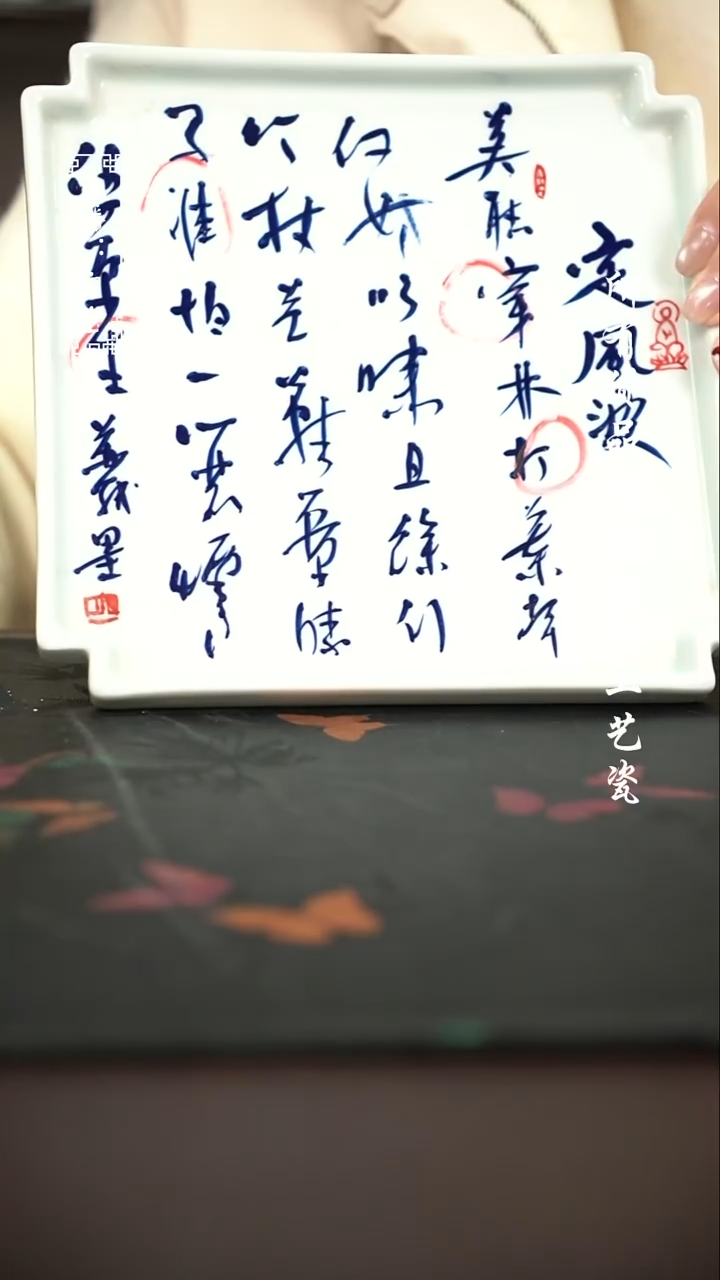 定風波
莫聽穿林打葉聲
何妨吟嘯且徐行
竹杖芒鞋輕勝
馬誰怕一蓑煙雨
任平生 墨
艺瓷